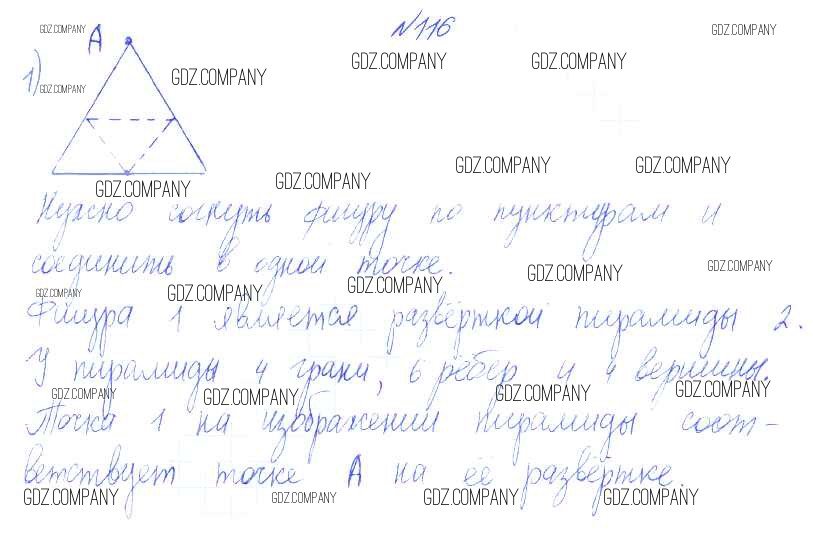 №116
GDZ.COMPANY GDZ.COMPANY
А
GDZ.COMPANY GDZ.COMPANY GDZ.COMPANY
1) GDZ.COMPANY
GDZ.COMPANY GDZ.COMPANY
GDZ.COMPANY GDZ.COMPANY
Нужно согнуть фигуру по пунктирам и
соединить в одной точке.
GDZ.COMPANY GDZ.COMPANY
GDZ.COMPANY GDZ.COMPANY GDZ.COMPANY
Фигура 1 является развёрткой пирамиды 2.
У пирамиды 4 грани, 6 рёбер и 4 вершины.
GDZ.COMPANY GDZ.COMPANY GDZ.COMPANY GDZ.COMPANY
Точка 1 на изображении пирамиды соот-
ветствует точке А на её развёртке.
GDZ.COMPANY GDZ.COMPANY GDZ.COMPANY GDZ.COMPANY